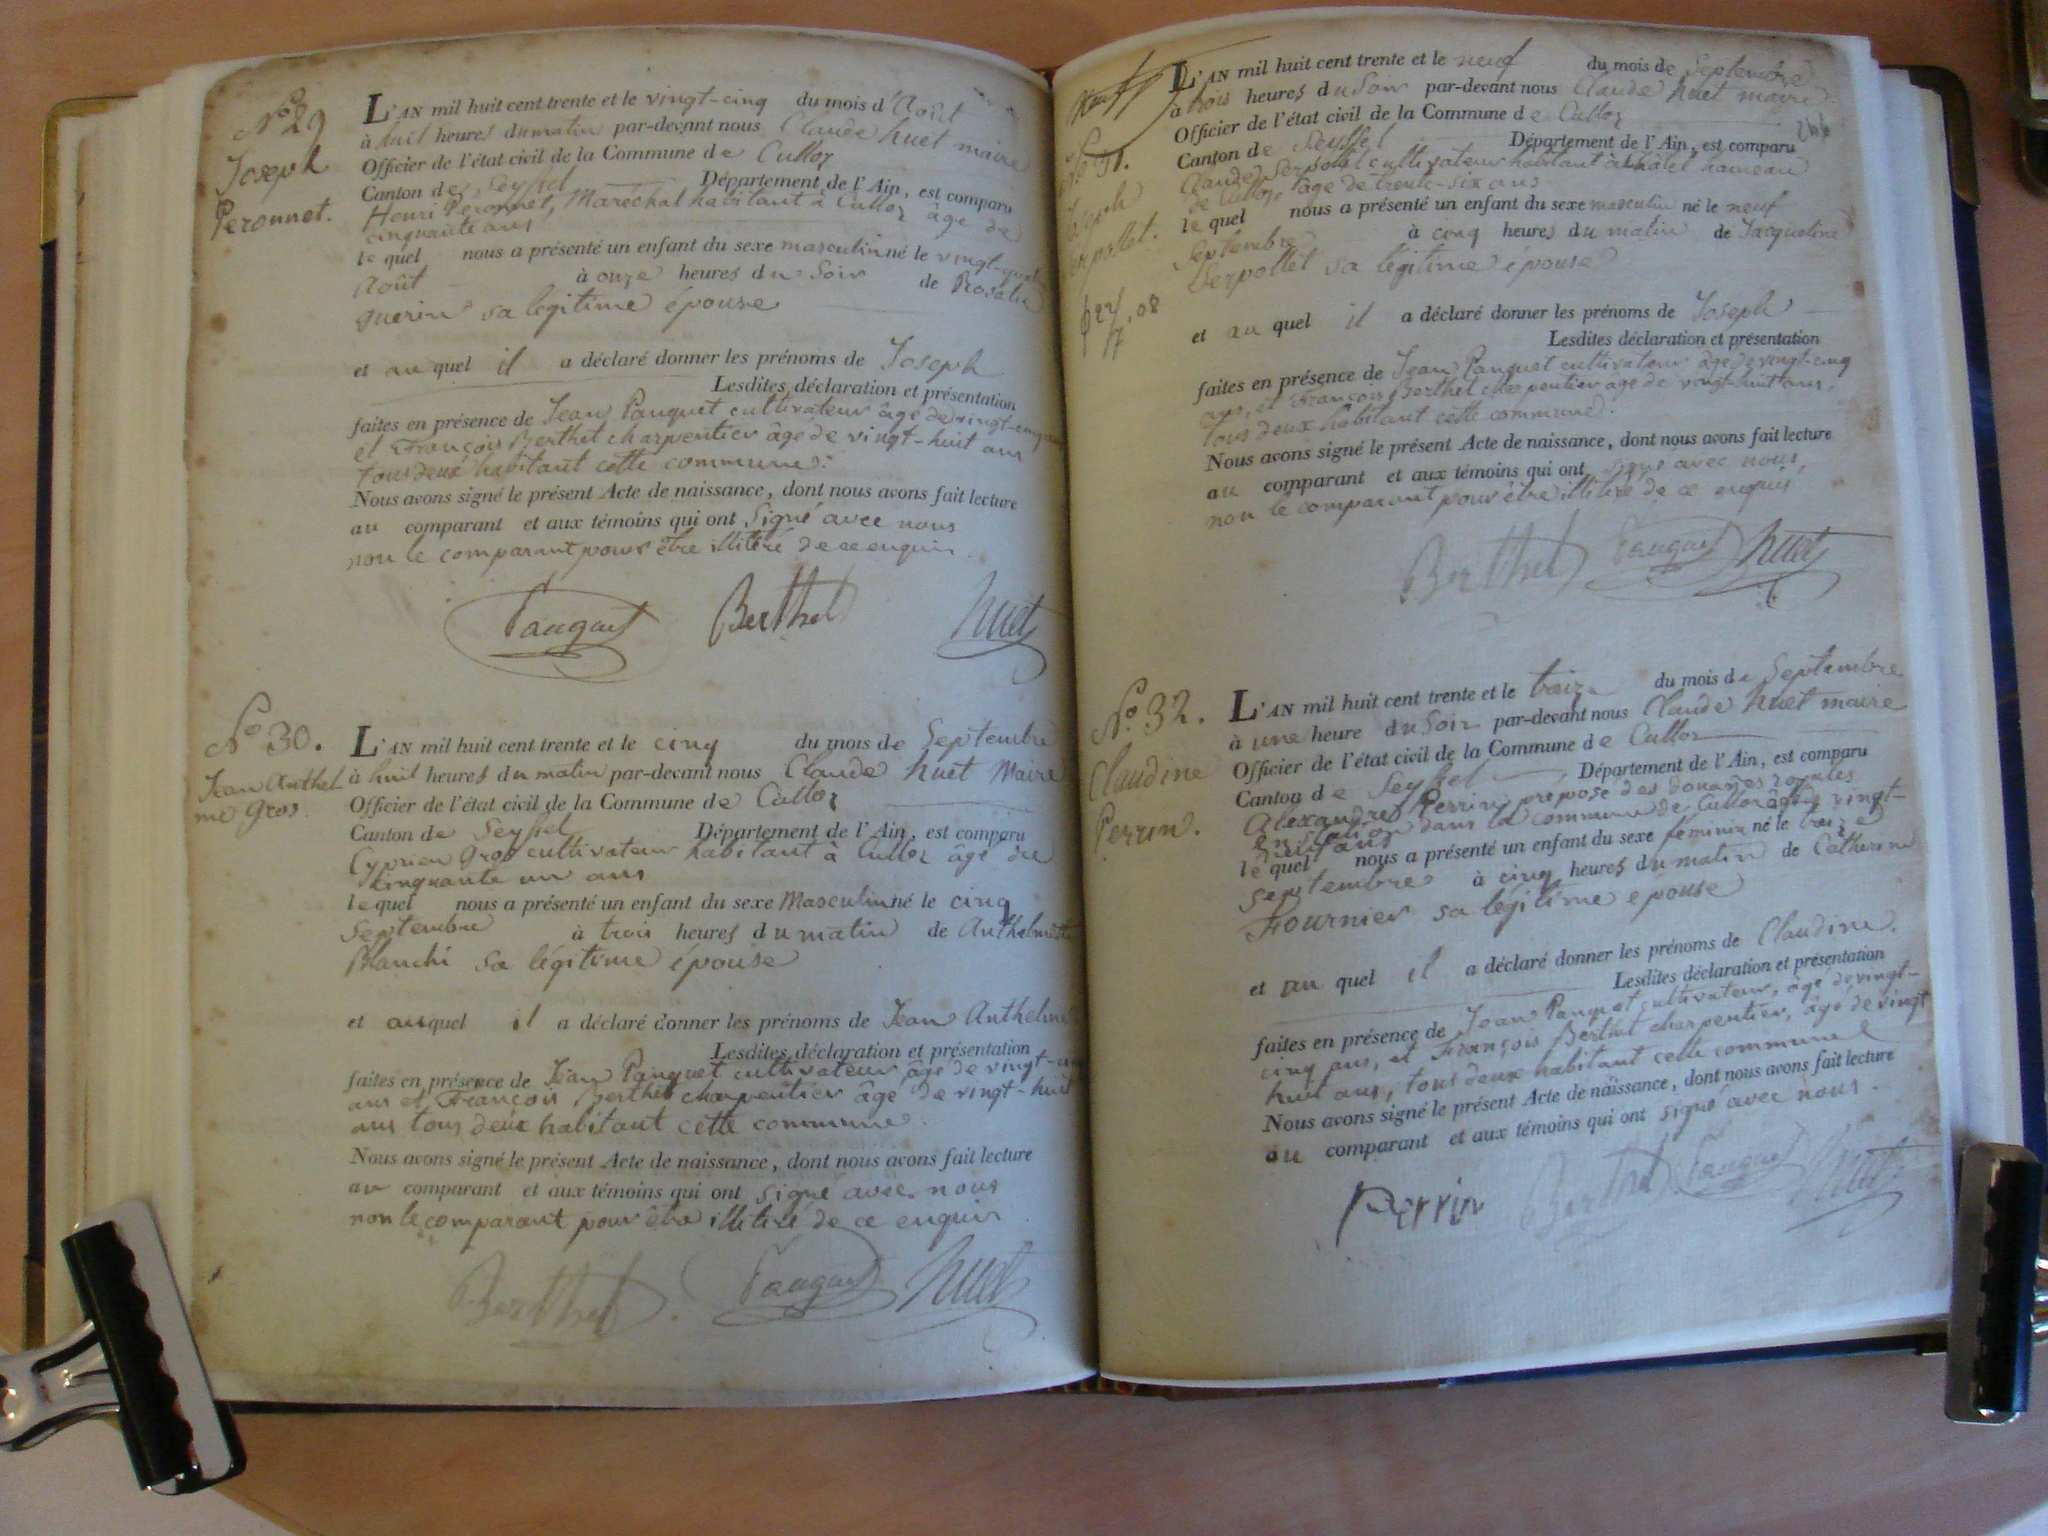 N° 29
Joseph
Peronnet.
L'AN mil huit cent trente et le vingt-cinq du mois d'Août
à huit heures du matin par-devant nous Claude huet maire
Officier de l'état civil de la Commune de Culloz
Canton de Seyssel Département de l'Ain, est comparu
Henri Peronnet, Maréchal habitant à Culloz âgé de
cinquante ans
lequel nous a présenté un enfant du sexe masculin né le vingt-quatre
Août à onze heures du Soir de Rosalie
guerin sa légitime épouse
et au quel il a déclaré donner les prénoms de Joseph
Lesdites déclaration et présentation
faites en présence de Jean Pauquet cultivateur âgé de vingt-cinq ans
et François Berthet charpentier âgé de vingt-huit ans
tous deux habitant cette commune.
Nous avons signé le présent Acte de naissance, dont nous avons fait lecture
au comparant et aux témoins qui ont Signé avec nous
non le comparant pour être illitéré de ce enquis.
Pauquet Berthet huet
N° 30.
Jean Anthel
me Gros.
L'AN mil huit cent trente et le cinq du mois de Septembre
à huit heures du matin par-devant nous Claude huet Maire
Officier de l'état civil de la Commune de Culloz
Canton de Seyssel Département de l'Ain, est comparu
Cyprien Gros cultivateur habitant à Culloz âgé de
cinquante un ans
lequel nous a présenté un enfant du sexe Masculin né le cinq
Septembre à trois heures du matin de Anthelmette
Blanchi sa légitime épouse
et au quel il a déclaré donner les prénoms de Jean Anthelme
Lesdites déclaration et présentation
faites en présence de Jean Pauquet cultivateur âgé de vingt-cinq
ans et François Berthet charpentier âgé de vingt-huit
ans tous deux habitant cette commune.
Nous avons signé le présent Acte de naissance, dont nous avons fait lecture
au comparant et aux témoins qui ont signé avec nous
non le comparant pour être illitéré de ce enquis
Berthet Pauquet huet
huet
N° 31.
Joseph
Serpollet.
L'AN mil huit cent trente et le neuf du mois de Septembre
à trois heures du Soir par-devant nous Claude huet maire
Officier de l'état civil de la Commune de Culloz
Canton de Seyssel Département de l'Ain, est comparu
Claude Serpollet cultivateur habitant à châtel hameau
de Culloz, âgé de trente-six ans
lequel nous a présenté un enfant du sexe masculin né le neuf
Septembre à cinq heures du matin de Jacqueline
Serpollet sa légitime épouse
et au quel il a déclaré donner les prénoms de Joseph
Lesdites déclaration et présentation
faites en présence de Jean Pauquet cultivateur âgé de vingt-cinq
ans, et François Berthet charpentier âgé de vingt-huit ans,
tous deux habitant cette commune.
Nous avons signé le présent Acte de naissance, dont nous avons fait lecture
au comparant et aux témoins qui ont signé avec nous,
non le comparant pour être illitéré de ce enquis
Berthet Pauquet huet
N° 32.
Claudine
Perrin.
L'AN mil huit cent trente et le treize du mois de Septembre
à une heure du Soir par-devant nous Claude huet maire
Officier de l'état civil de la Commune de Culloz
Canton de Seyssel Département de l'Ain, est comparu
Alexandre Perrin, préposé des douanes royales
en station dans la commune de Culloz âgé de vingt-
huit ans
lequel nous a présenté un enfant du sexe féminin né le treize
Septembre à cinq heures du matin de Catherine
Fournier sa légitime épouse
et au quel il a déclaré donner les prénoms de Claudine.
Lesdites déclaration et présentation
faites en présence de Jean Pauquet cultivateur, âgé de vingt-
cinq ans, et François Berthet charpentier, âgé de vingt
huit ans, tous deux habitant cette commune
Nous avons signé le présent Acte de naissance, dont nous avons fait lecture
au comparant et aux témoins qui ont signé avec nous.
Perrin Berthet Pauquet huet